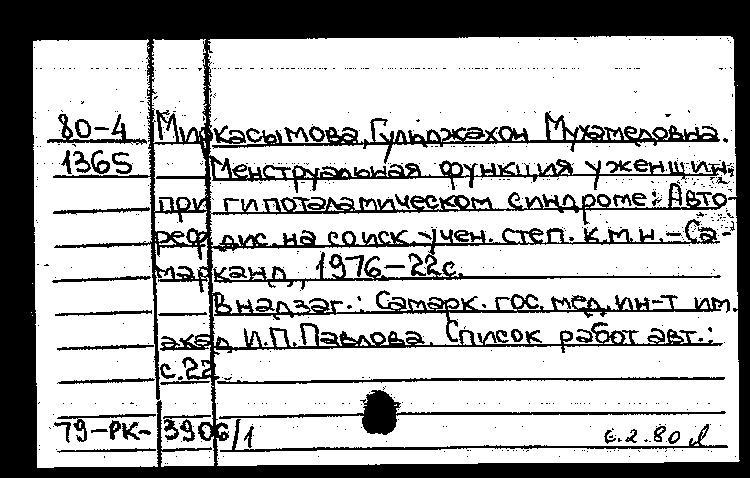 80-4 Миркасымова, Гульджахон Мухамедовна.
1365 Менструальная функция у женщин
при гипоталамическом синдроме: Авто-
реф. дис. на соиск. учен. степ. к.м.н. - Са-
марканд, 1976 - 22с.
В надзаг.: Самарк. гос. мед. ин-т им.
акад. И.П. Павлова. Список работ авт.:
с.22
79-РК-3906/1 2.80